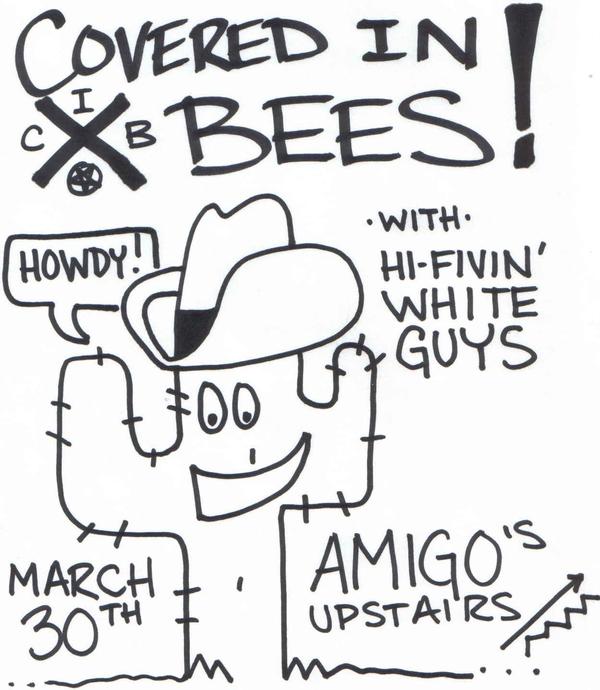 COVERED IN
BEES!
I
C B
HOWDY!!
·WITH·
HI-FIVIN'
WHITE
GUYS
MARCH
30TH
AMIGO'S
UPSTAIRS